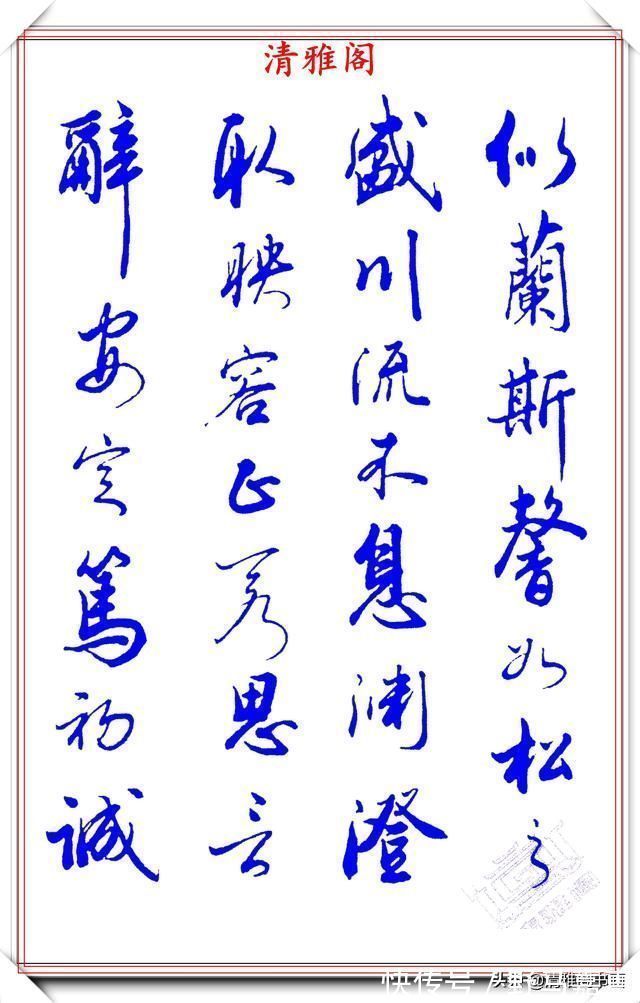 清雅阁
似蘭斯馨如松之
盛川流不息淵澄
取映容止若思言
辭安定篤初誠
快传号